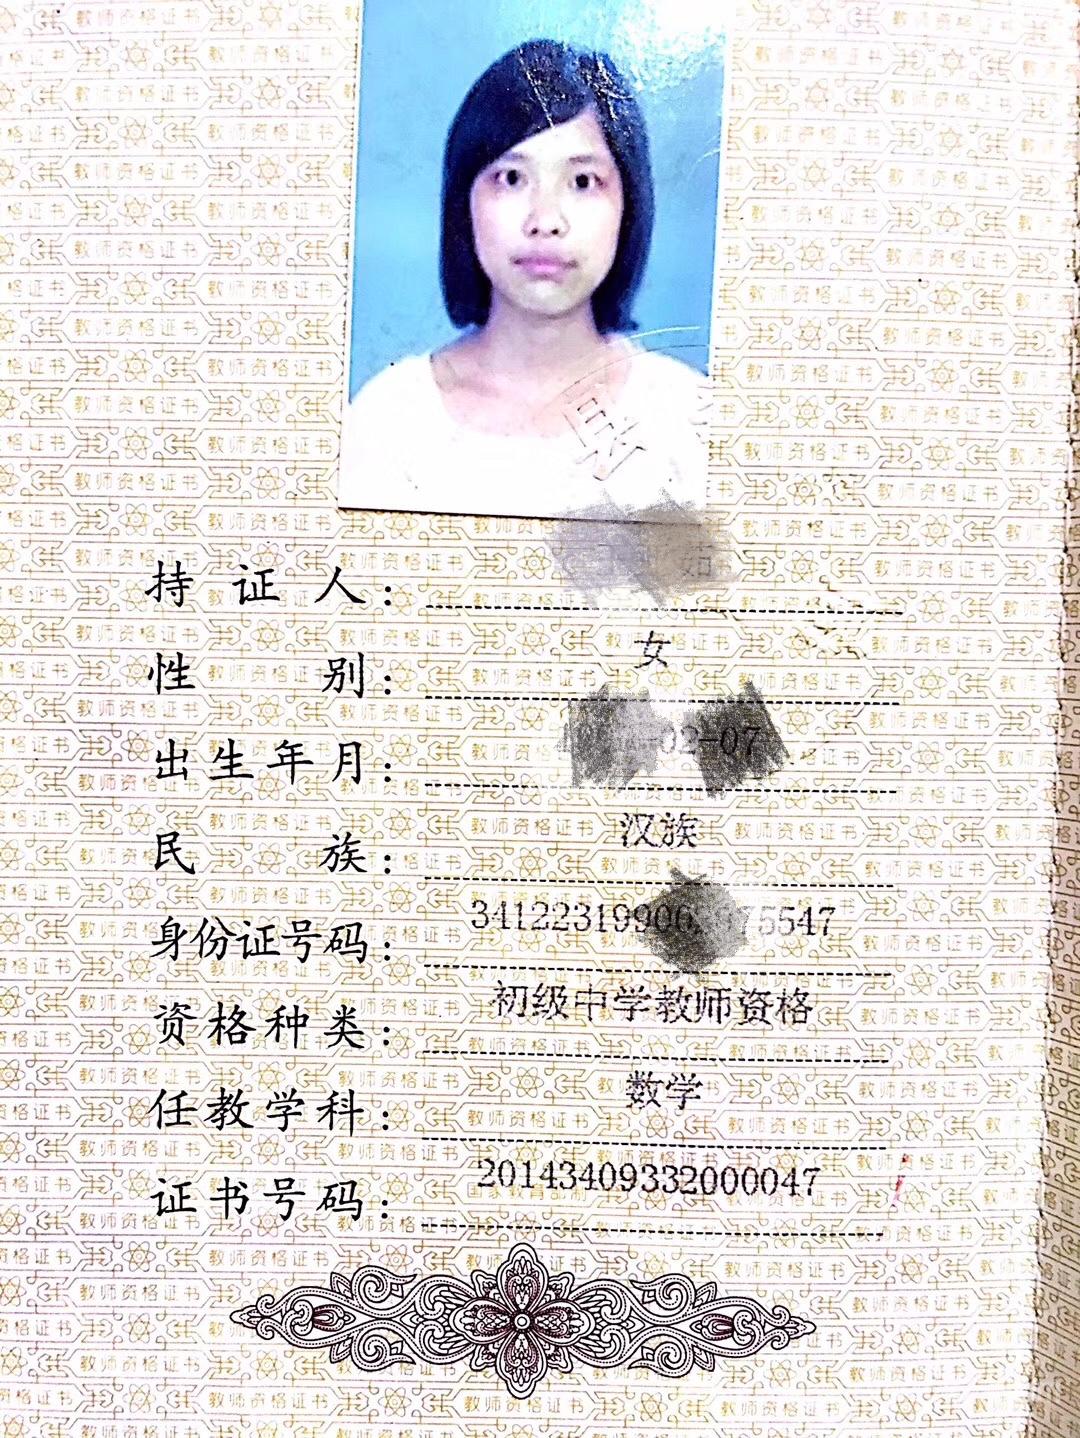 持证人：
性别：女
出生年月：
民族：汉族
身份证号码：
资格种类：初级中学教师资格
任教学科：数学
证书号码：20143409332000047